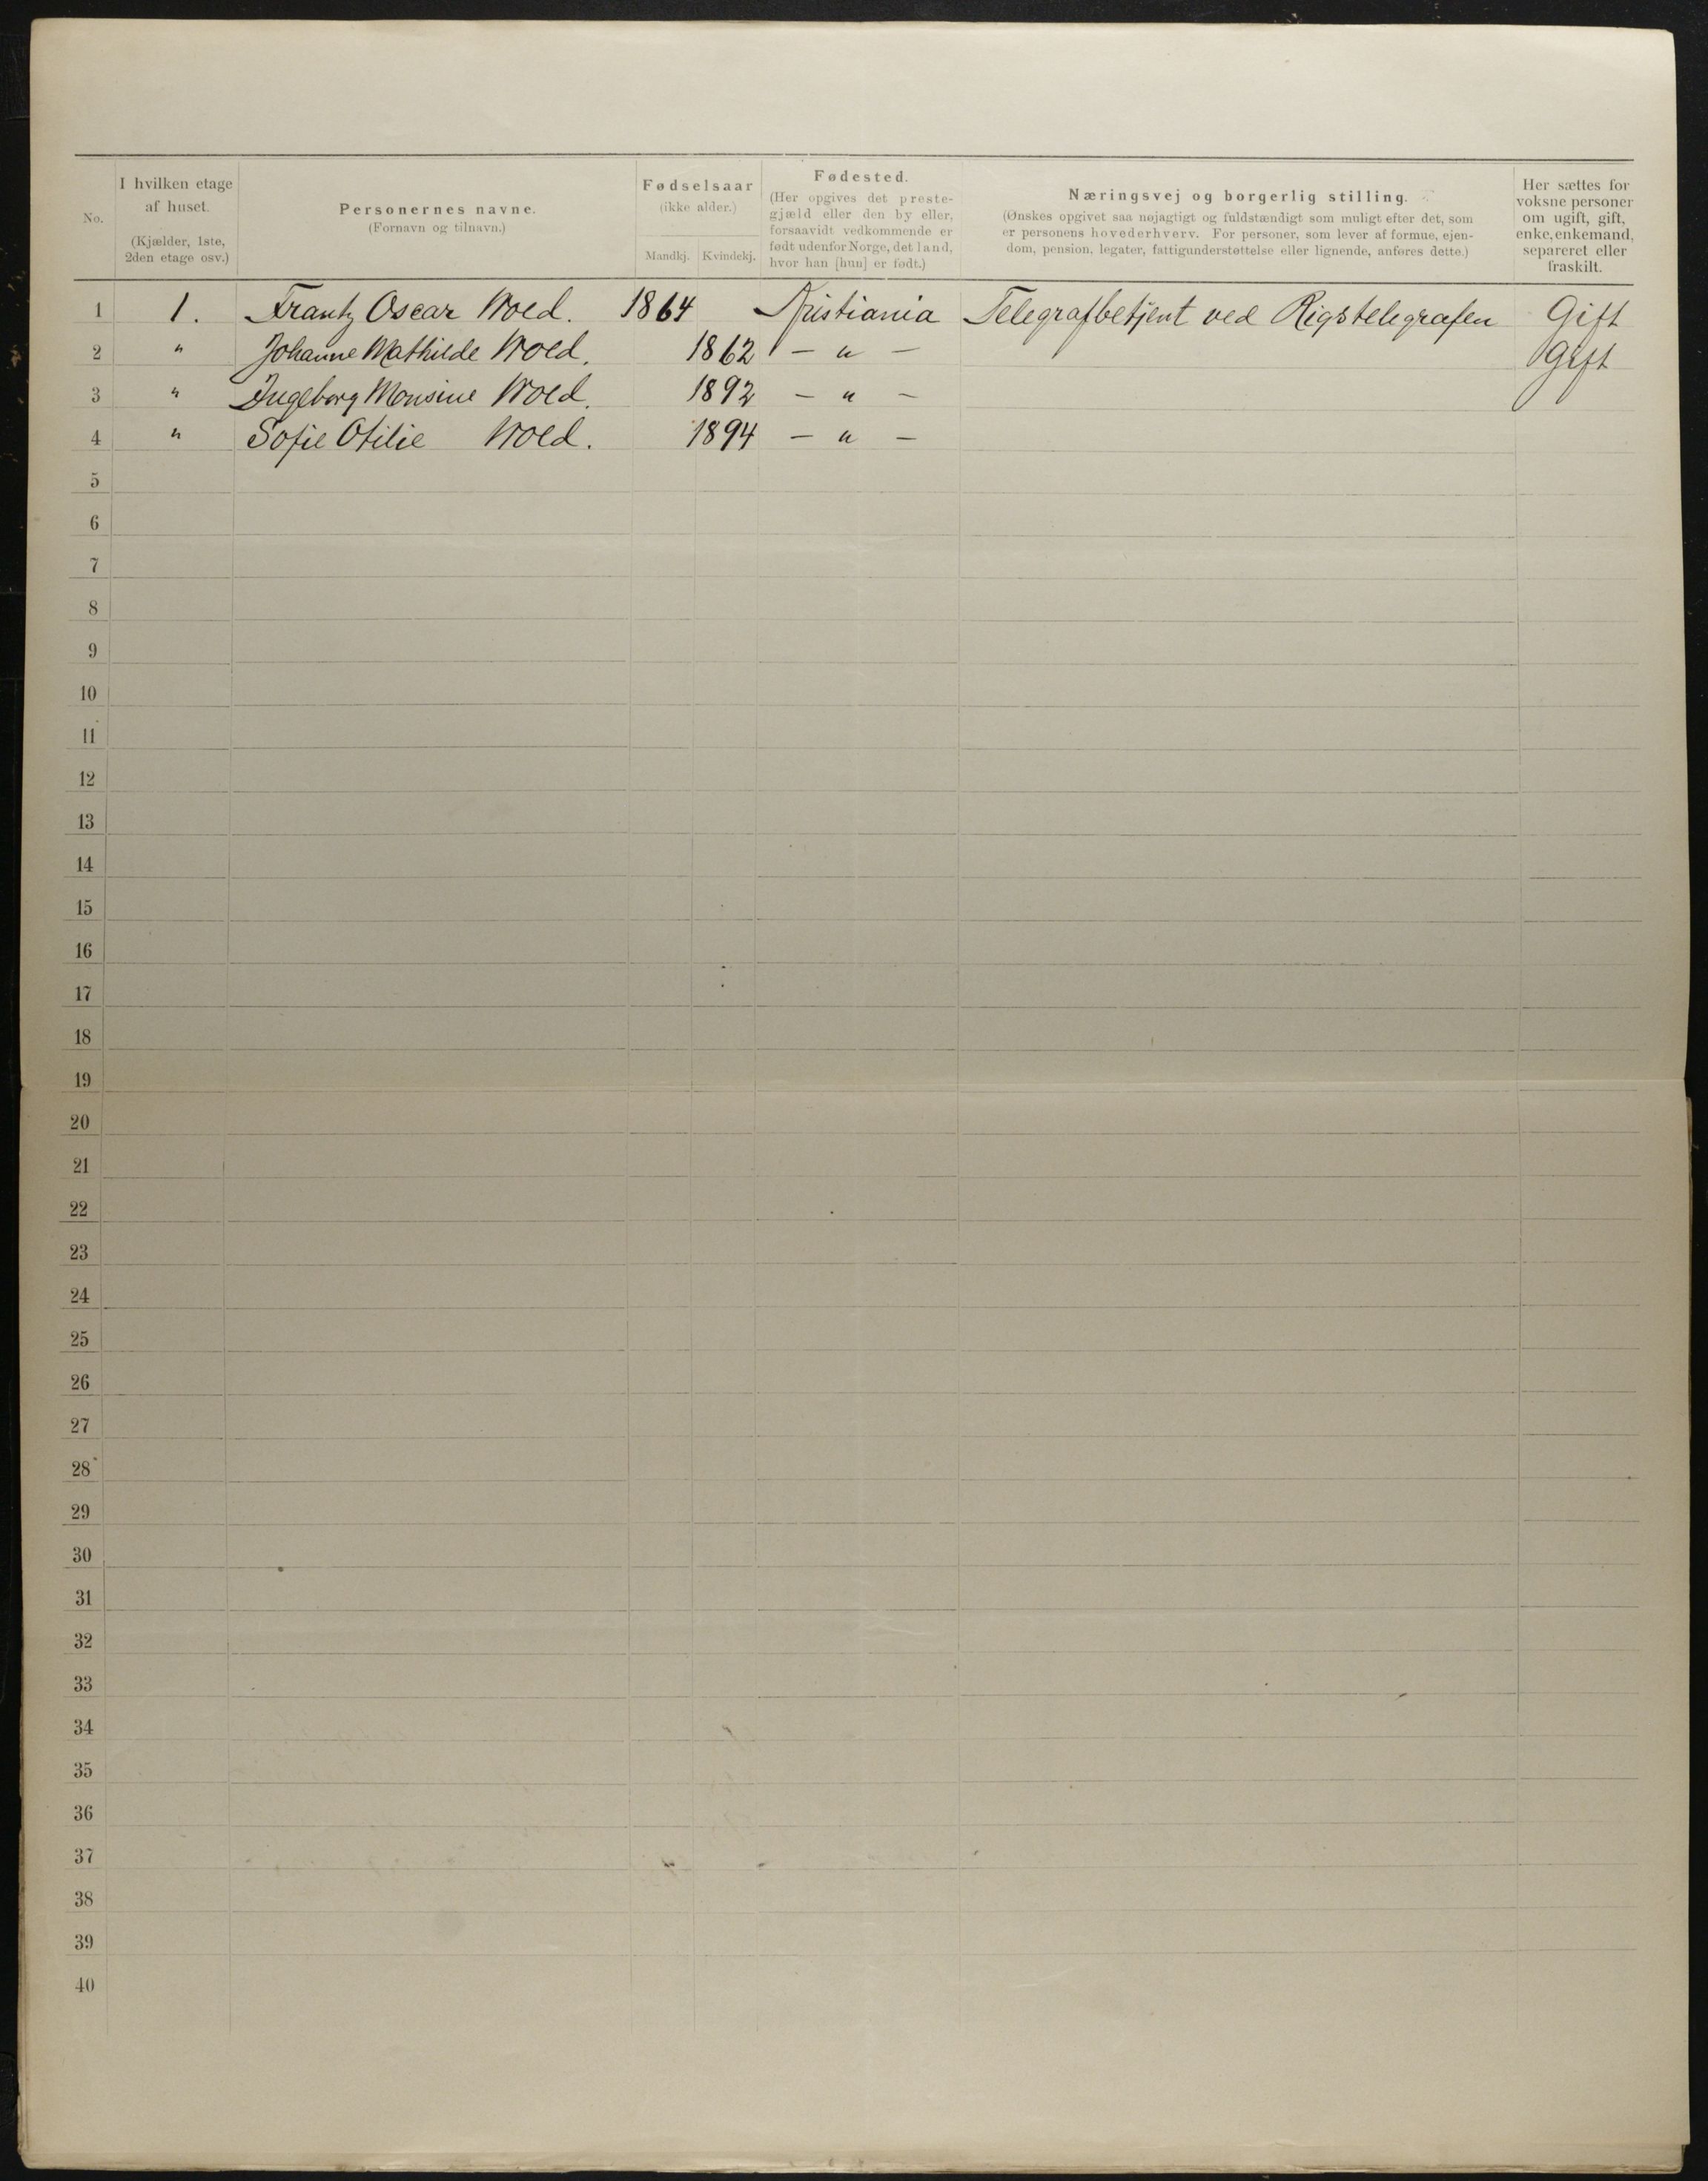 No.
I hvilken etage
af huset.
(Kjælder, 1ste,
2den etage osv.)
Personernes navne.
(Fornavn og tilnavn.)
Fødselsaar
(ikke alder.)
Mandkj. Kvindekj.
Fødested.
(Her opgives det preste-
gjæld eller den by eller,
forsaavidt vedkommende er
født udenfor Norge, det land,
hvor han [hun] er født.)
Næringsvej og borgerlig stilling.
(Ønskes opgivet saa nøjagtigt og fuldstændigt som muligt efter det, som
er personens hovederhverv. For personer, som lever af formue, ejen-
dom, pension, legater, fattigunderstøttelse eller lignende, anføres dette.)
Her sættes for
voksne personer
om ugift, gift,
enke, enkemand,
separeret eller
fraskilt.
1 1. Frantz Oscar Woed. 1864 Kristiania Telegrafbetjent ved Rigstelegrafen Gift
2 " Johanne Mathilde Woed. 1862 — " — Gift
3 " Ingeborg Monsine Woed. 1892 — " —
4 " Sofie Otilie Woed. 1894 — " —
5
6
7
8
9
10
11
12
13
14
15
16
17
18
19
20
21
22
23
24
25
26
27
28
29
30
31
32
33
34
35
36
37
38
39
40